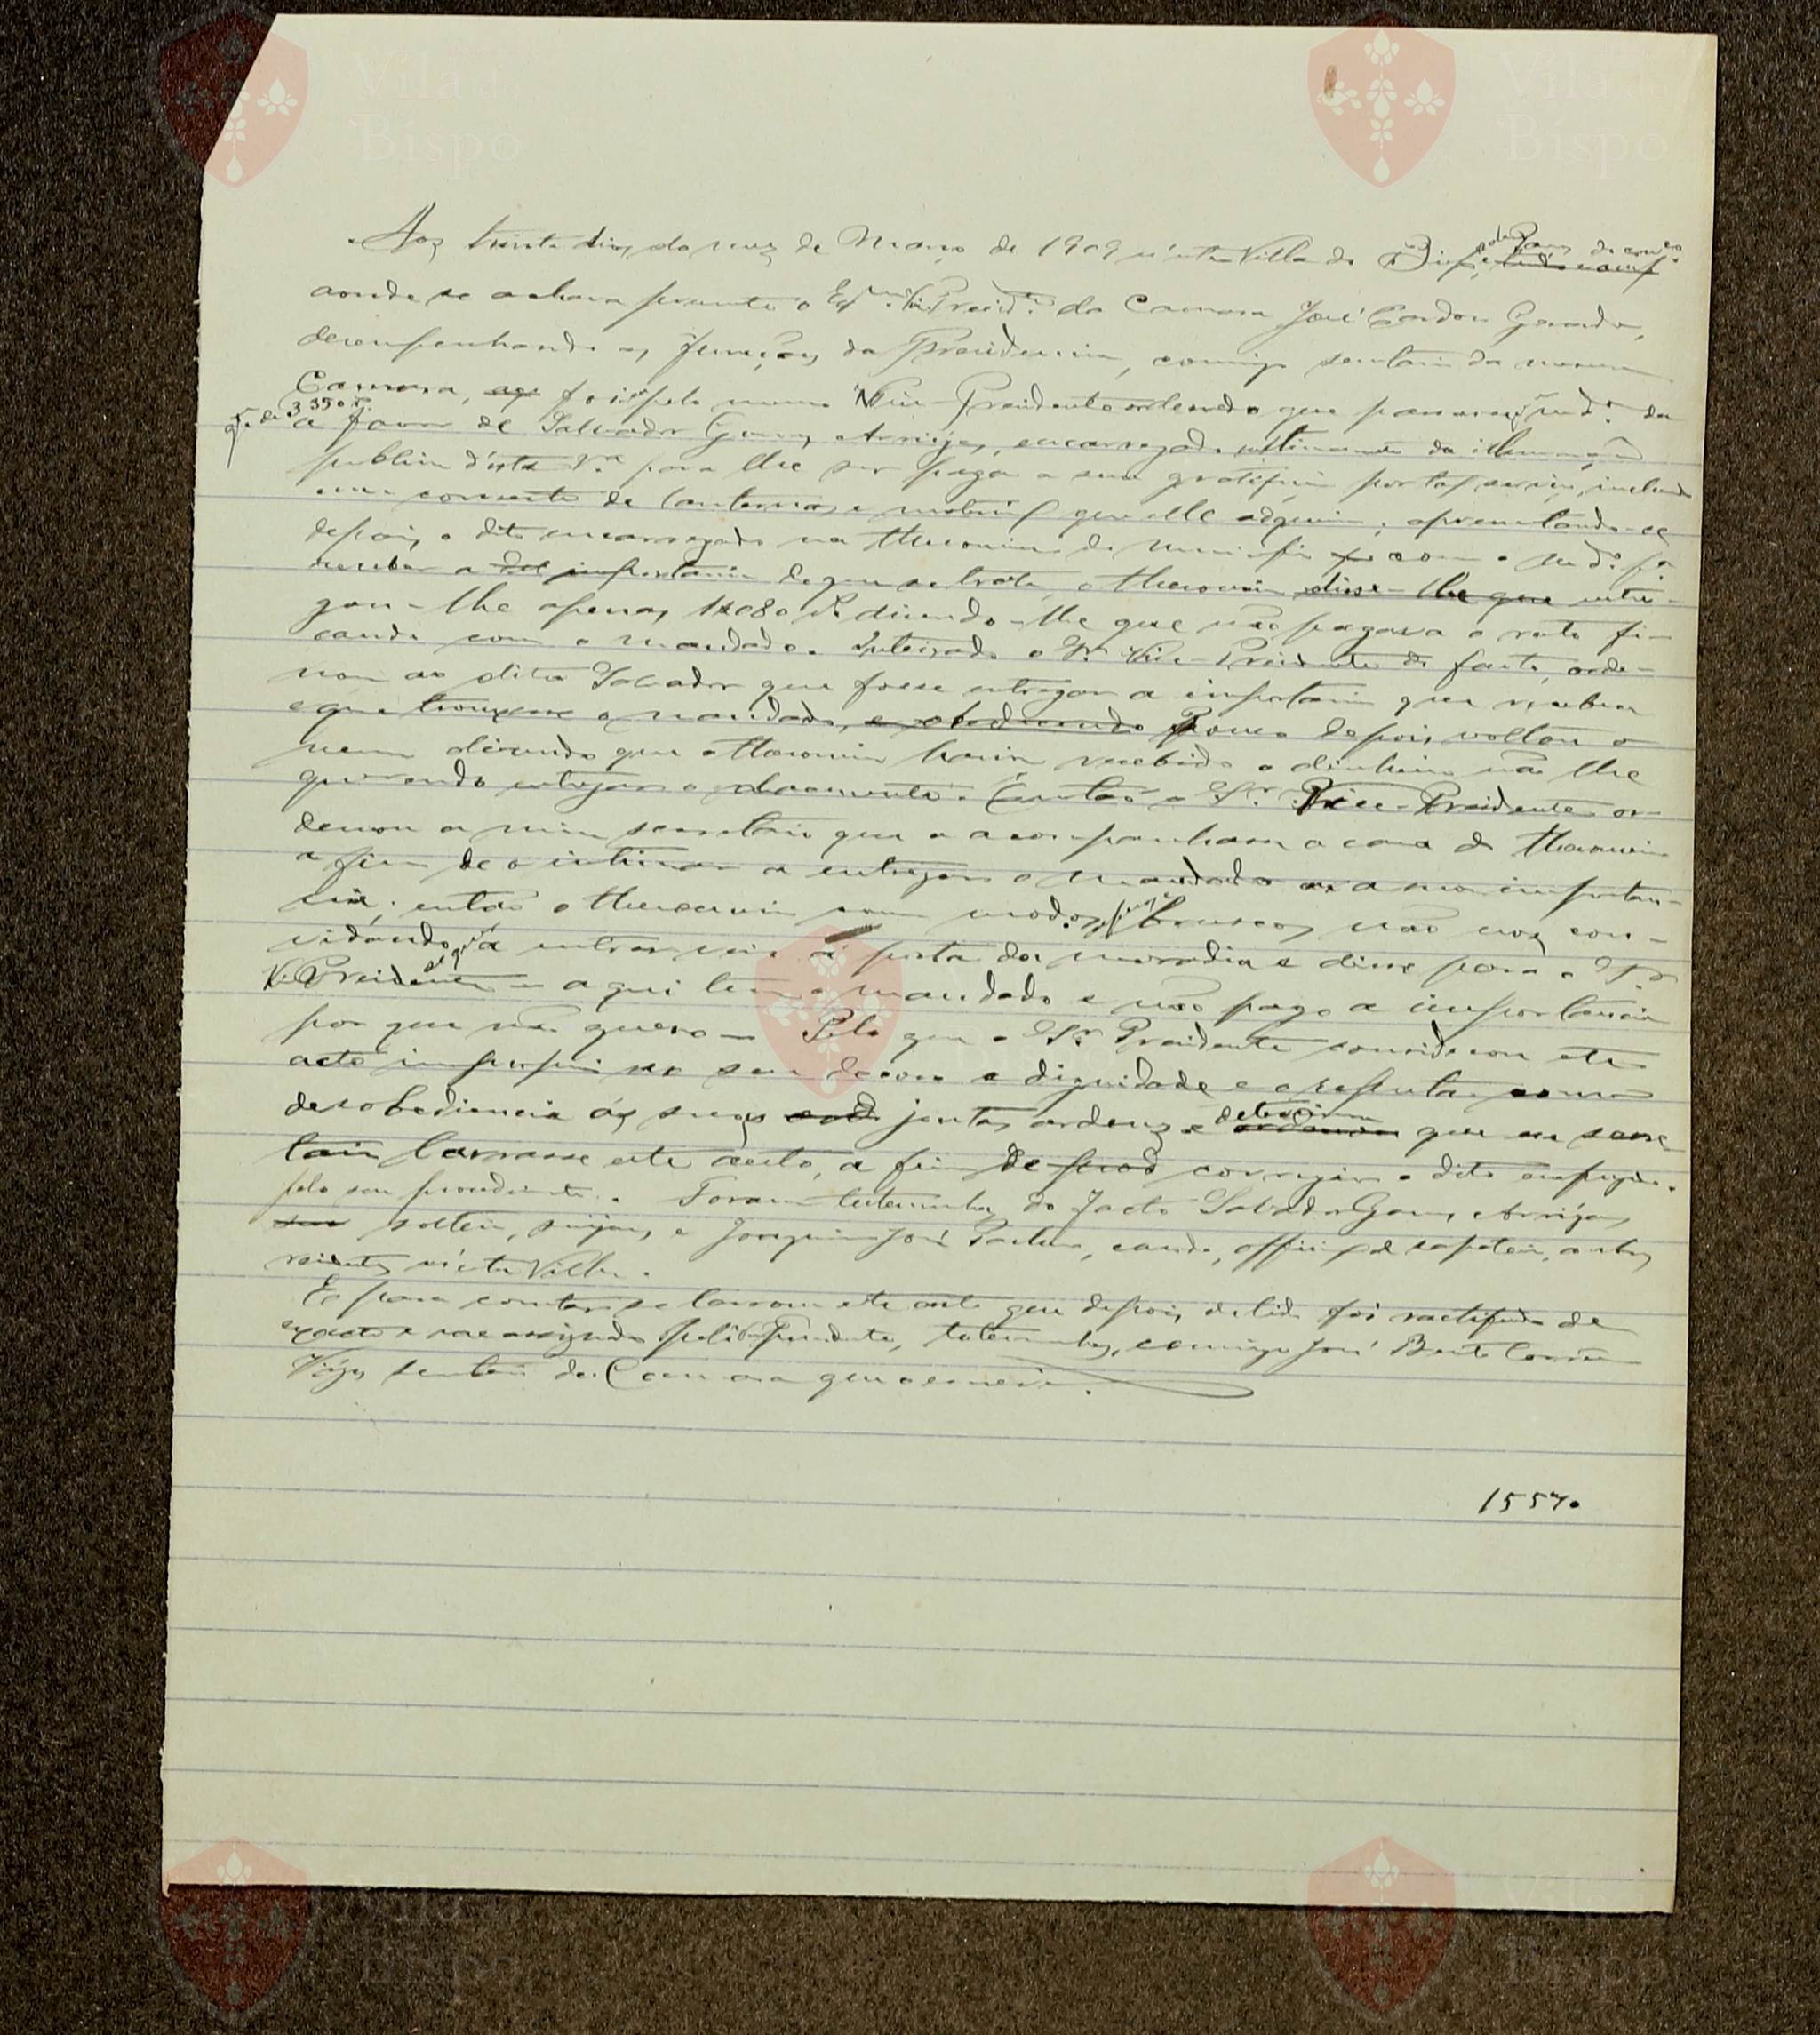 Aos trinta dias do mez de Março de 1909 n'esta Villa do Bispo e Paços do concelho
aonde se achava presente o Exmo. Vice Presid.e da Camara José Cardoso
desempenhando as funções da Presidencia, comigo secretario da mesma
Camara, foi pelo mesmo Vice-Presidente ordenado que passasse um md.o da
q.tia de 3350 r.
a favor de Salvador Gomes Arrojas, encarregado ultimamente da illuminação
publica d'esta V.a para lhe ser paga a sua gratificação por tal serviço, incluindo
um concerto de lanternas e que elle adquiriu; apresentando-se
depois o dito encarregado na thesouraria do municipio com o md.o p.a
receber a importancia de que se trata, o thesoureiro disse-lhe que entre-
gou-lhe apenas 1:080 r.s dizendo-lhe que não pagava o resto fi-
cando com o mandado. Inteirado o Sr. Vice-Presidente do facto, orde-
nou ao dito Salvador que fosse entregar a importancia que recebeu
e que trouxesse o mandado, e obedecendo Pouco depois voltou o
mesmo dizendo que o thesoureiro havia recebido o dinheiro não lhe
querendo entregar o documento. Então o Sr. Vice-Presidente or-
denou a mim secretario que o acompanhasse a casa do thesoureiro
a fim de o intimar a entregar o mandado ou a sua importan-
cia; então o thesoureiro com modos bruscos, não nos con-
vidando sequer a entrar veio á porta da moradia e disse para o Sr.
V. Presidente = aqui tem o mandado e não pago a importancia
por que não quero = Pelo que o Sr. Presidente considerou este
acto improprio no seu decoro e dignidade e o reputa como
desobediencia ás suas justas ordens e determinou que eu secre-
tario lavrasse este auto, a fim de corrigir o dito empregado
pelo seu procedimento. Foram testemunhas do facto Salvador Gomes Arrojas
solteiro, e Joaquim José, casado, official de sapateiro, ambos
residentes n'esta Villa.
E para constar se lavrou este auto que depois de lido foi ractificado de
exacto e vae assignado pelo V. Presidente, testemunhas, comigo José Bento Correia
Viegas secretario da Camara que o escrevi.
1557.